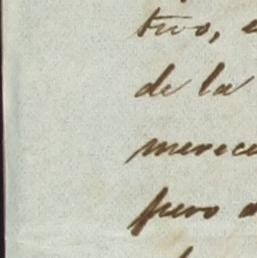 tivo,
de la
merece
pero